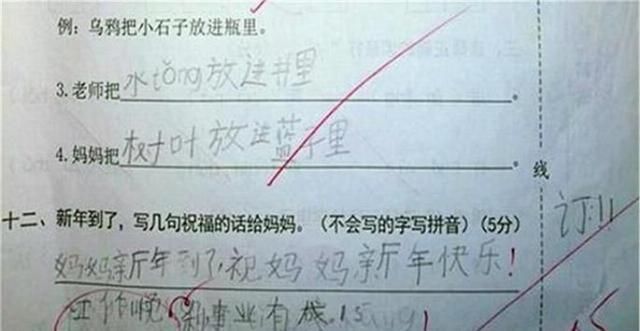 例：乌鸦把小石子放进瓶里。
3.老师把水tǒng放进井里。
4.妈妈把树叶放进蓝子里。
线
十二、新年到了，写几句祝福的话给妈妈。（不会写的字写拼音）（5分）
订!!
妈妈新年到了,祝妈妈新年快乐！
事业有